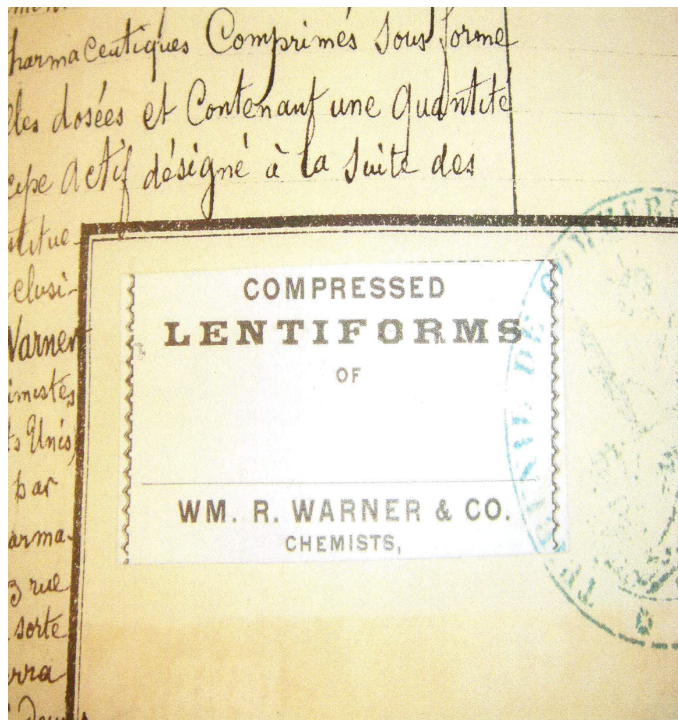 harmaceutiques Comprimés sous forme
les dosées et Contenant une quantité
cipe actif désigné à la suite des
stitue
clusi-
Warner
imistes
ts Unis,
par
arma-
3 rue
sorte
rra
COMPRESSED
LENTIFORMS
OF
WM. R. WARNER & CO.
CHEMISTS,
TRIBUNAL DE COMMERCE